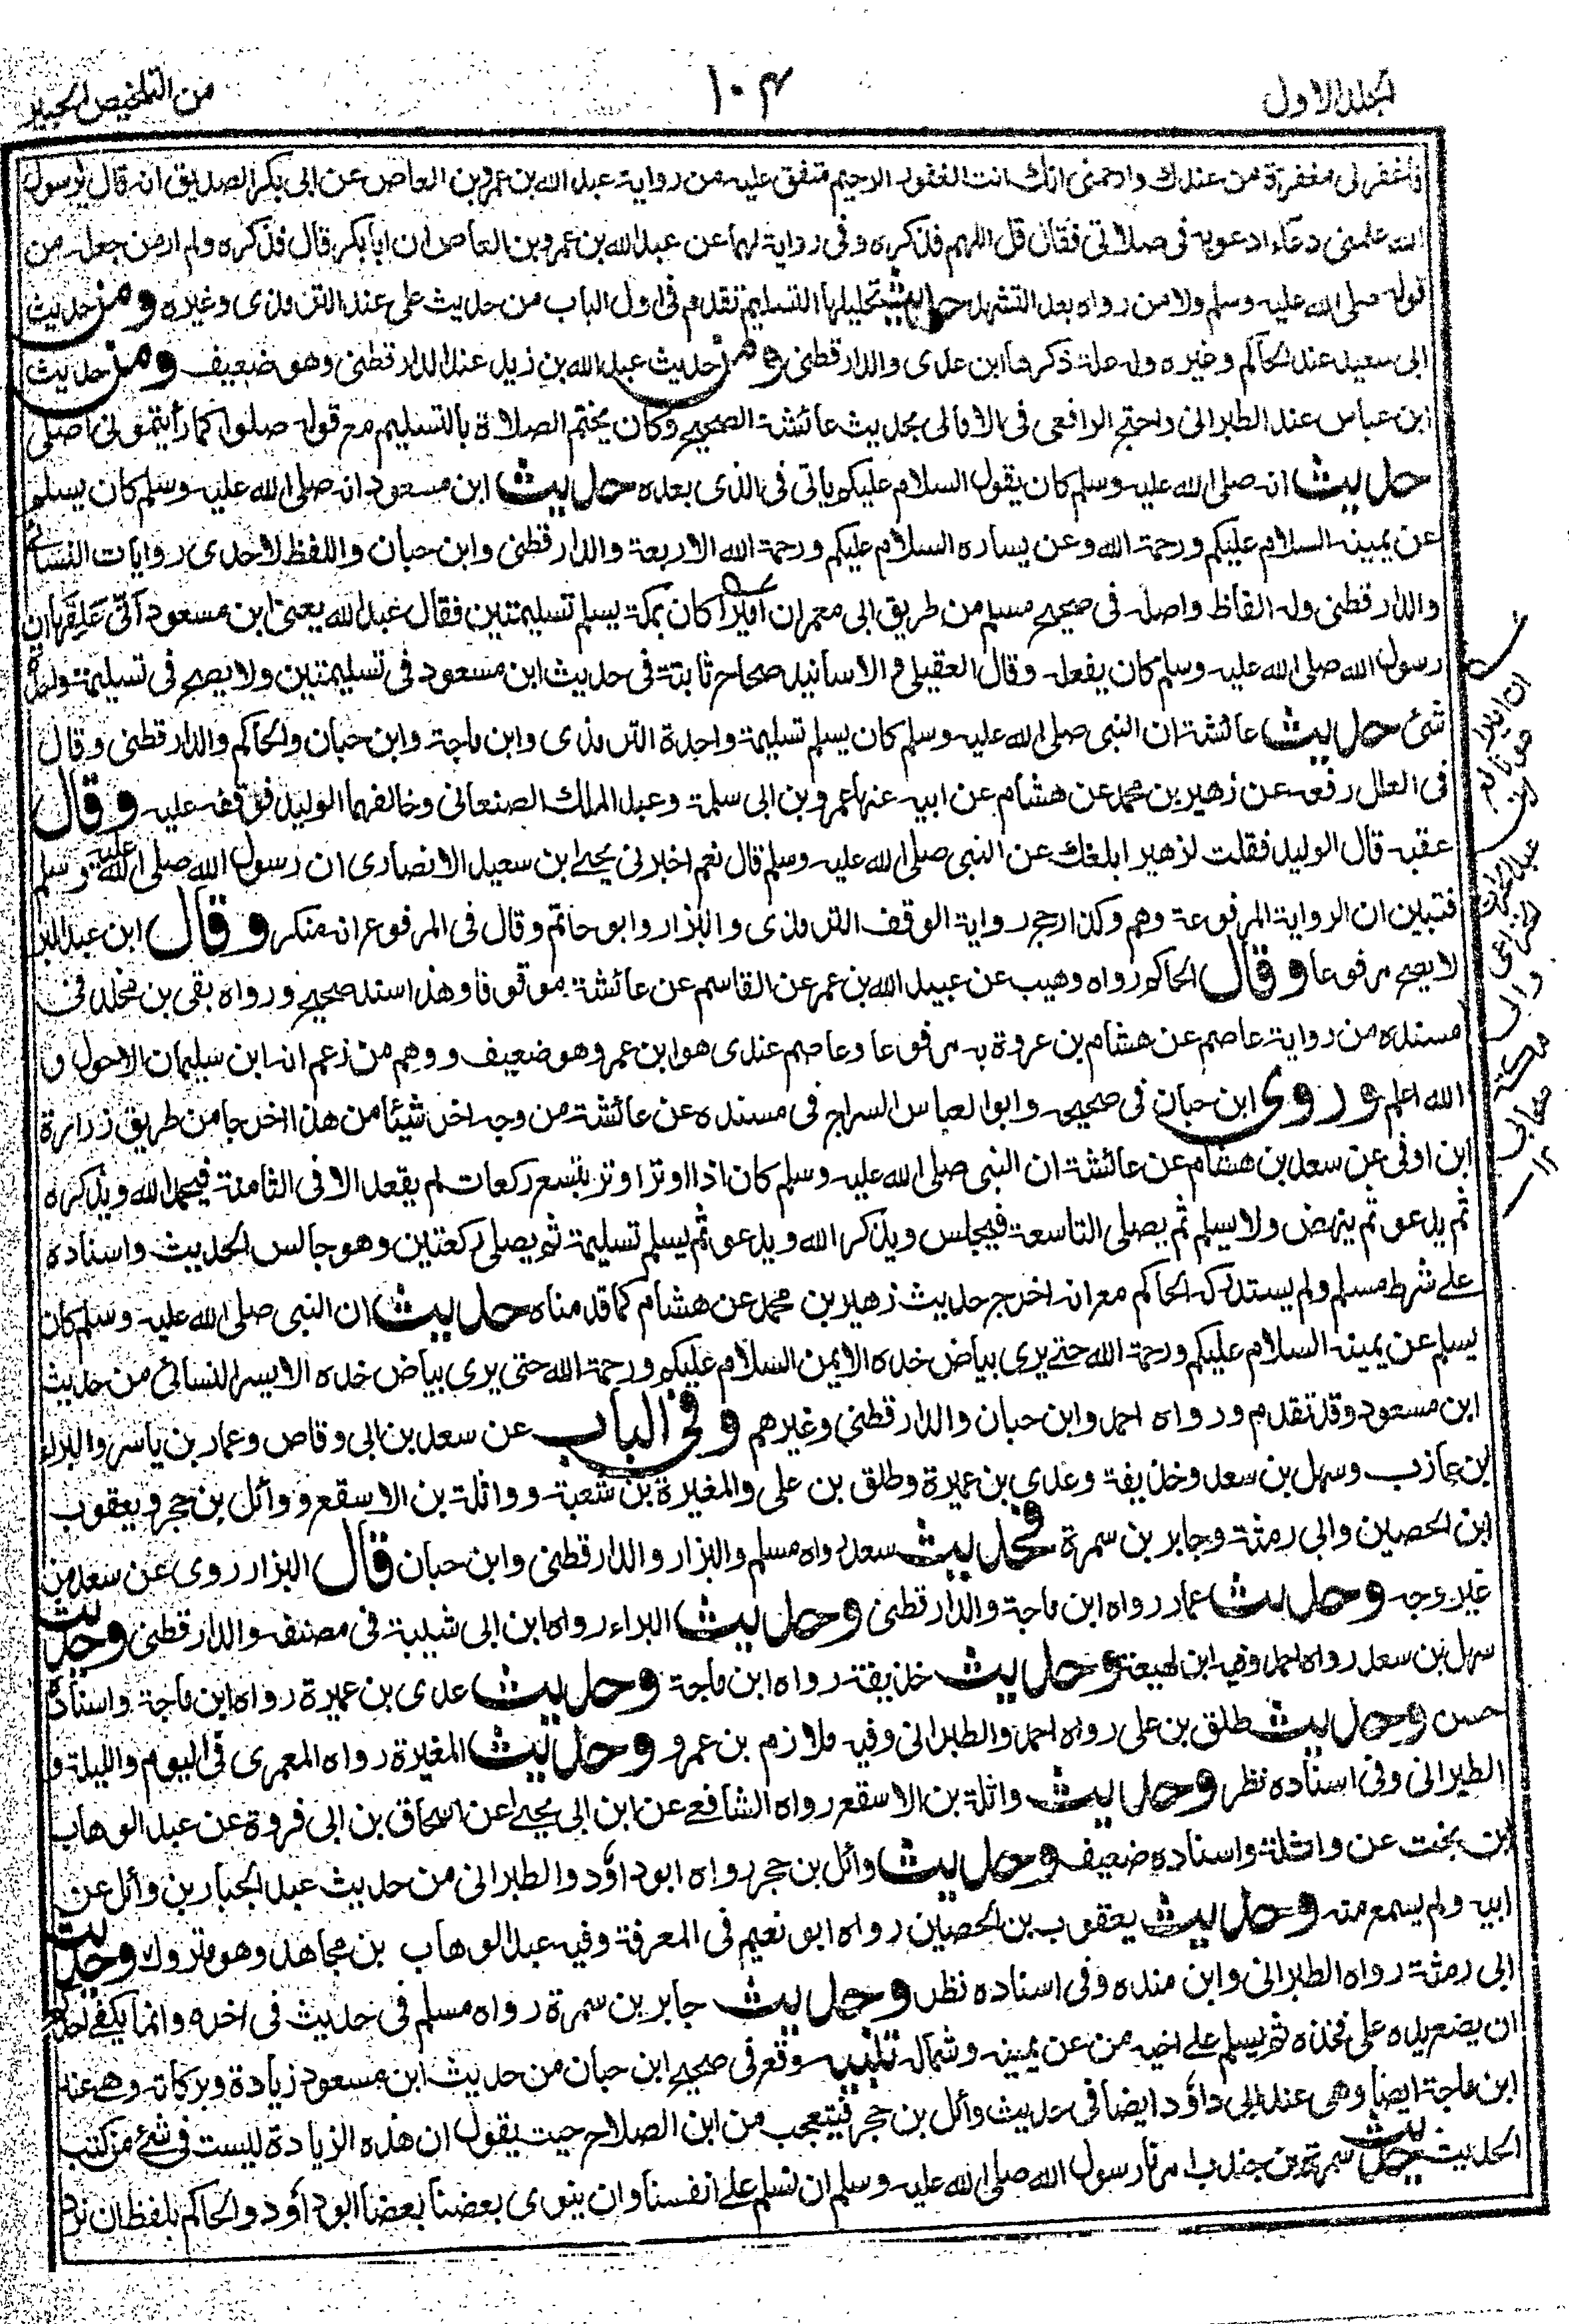 المجلد الاول
١٠٤
من التلخيص الحبير
فاغفر لى مغفرة من عندك وارحمنى انك انت الغفور الرحيم متفق عليه من رواية عبد الله بن عمرو بن العاص عن ابى بكر الصديق انه قال يا رسول
الله علمنى دعاء ادعو به فى صلاتى فقال قل اللهم فذكره وفى رواية لهما عن عبد الله بن عمرو بن العاص ان ابا بكر قال فذكره ولم ار من جعله من
قوله صلى الله عليه وسلم ولا من رواه بعد التشهد حديث تحليلها التسليم تقدم فى اول الباب من حديث على عند الترمذى وغيره ومن حديث
ابى سعيد عند الحاكم وغيره وله علة ذكرها ابن عدى والدارقطنى ومن حديث عبد الله بن زيد عند الدارقطنى وهو ضعيف ومن حديث
ابن عباس عند الطبرانى واحتج الرافعى فى الامالى بحديث عائشة الصحيح وكان يختم الصلاة بالتسليم مع قوله صلوا كما رأيتمونى اصلى
حديث انه صلى الله عليه وسلم كان يقول السلام عليكم ياتى فى الذى بعده حديث ابن مسعود انه صلى الله عليه وسلم كان يسلم
عن يمينه السلام عليكم ورحمة الله وعن يساره السلام عليكم ورحمة الله الاربعة والدارقطنى وابن حبان واللفظ لاحدى روايات النسائى
والدارقطنى وله الفاظ واصله فى صحيح مسلم من طريق ابى معمر ان اميرا كان بمكة يسلم تسليمتين فقال عبد الله يعنى ابن مسعود أنى علقها ان
رسول الله صلى الله عليه وسلم كان يفعله وقال العقيلى والاسانيد صحاح ثابتة فى حديث ابن مسعود فى تسليمتين ولا يصح فى تسليمة واحدة
شئ حديث عائشة ان النبى صلى الله عليه وسلم كان يسلم تسليمة واحدة الترمذى وابن ماجة وابن حبان والحاكم والدارقطنى وقال
فى العلل رفعه عن زهير بن محمد عن هشام عن ابيه عنها عمرو بن ابى سلمة وعبد الملك الصنعانى وخالفهما الوليد فوقفه عليه وقال
عقبه قال الوليد فقلت لزهير ابلغك عن النبى صلى الله عليه وسلم قال نعم اخبرنى يحيى ابن سعيد الانصارى ان رسول الله صلى الله عليه وسلم
فتبين ان الرواية المرفوعة وهم وكذا رجح رواية الوقف الترمذى والبزار وابو حاتم وقال فى المرفوع انه منكر وقال ابن عبد البر
لا يصح مرفوعا وقال الحاكم رواه وهيب عن عبيد الله بن عمر عن القاسم عن عائشة موقوفا وهذا سند صحيح ورواه بقى بن مخلد فى
مسنده من رواية عاصم عن هشام بن عروة به مرفوعا وعاصم عندى هو ابن عمر وهو ضعيف ووهم من زعم انه ابن سليمان الاحول و
الله اعلم وروى ابن حبان فى صحيحه وابو العباس السراج فى مسنده عن عائشة من وجه اخر شيئا من هذا اخرجا من طريق زرارة
ابن اوفى عن سعد بن هشام عن عائشة ان النبى صلى الله عليه وسلم كان اذا اوتر اوتر بتسع ركعات لم يقعد الا فى الثامنة فيحمد الله ويذكره
ثم يدعو ثم ينهض ولا يسلم ثم يصلى التاسعة فيجلس ويذكر الله ويدعو ثم يسلم تسليمة ثم يصلى ركعتين وهو جالس الحديث واسناده
على شرط مسلم ولم يستدركه الحاكم مع انه اخرج حديث زهير بن محمد عن هشام كما قدمناه حديث ان النبى صلى الله عليه وسلم كان
يسلم عن يمينه السلام عليكم ورحمة الله حتى يرى بياض خده الايمن السلام عليكم ورحمة الله حتى يرى بياض خده الايسر النسائى من حديث
ابن مسعود وقد تقدم ورواه احمد وابن حبان والدارقطنى وغيرهم وفى الباب عن سعد بن ابى وقاص وعمار بن ياسر والبراء
بن عازب وسهل بن سعد وحذيفة وعدى بن عميرة وطلق بن على والمغيرة بن شعبة وواثلة بن الاسقع ووائل بن حجر ويعقوب
ابن الحصين وابى رمثة وجابر بن سمرة فحديث سعد رواه مسلم والبزار والدارقطنى وابن حبان قال البزار روى عن سعد من
غير وجه وحديث عمار رواه ابن ماجة والدارقطنى وحديث البراء رواه ابن ابى شيبة فى مصنفه والدارقطنى وحديث
سهل بن سعد رواه احمد وفيه ابن لهيعة وحديث حذيفة رواه ابن ماجة وحديث عدى بن عميرة رواه ابن ماجة واسناده
حسن وحديث طلق بن على رواه احمد والطبرانى وفيه ملازم بن عمرو وحديث المغيرة رواه المعمرى فى اليوم والليلة و
الطبرانى وفى اسناده نظر وحديث واثلة بن الاسقع رواه الشافعى عن ابن ابى يحيى عن اسحاق بن ابى فروة عن عبد الوهاب
ابن بخت عن واثلة واسناده ضعيف وحديث وائل بن حجر رواه ابو داؤد والطبرانى من حديث عبد الجبار بن وائل عن
ابيه ولم يسمع منه وحديث يعقوب بن الحصين رواه ابو نعيم فى المعرفة وفيه عبد الوهاب بن مجاهد وهو متروك وحديث
ابى رمثة رواه الطبرانى وابن منده وفى اسناده نظر وحديث جابر بن سمرة رواه مسلم فى حديث فى اخره وانما يكفى احدكم
ان يضع يده على فخذه ثم يسلم على اخيه من عن يمينه وشماله تنبيه وقع فى صحيح ابن حبان من حديث ابن مسعود زيادة وبركاته وهى عند
ابن ماجة ايضا وهى عند ابى داؤد ايضا فى حديث وائل بن حجر فيتعجب من ابن الصلاح حيث يقول ان هذه الزيادة ليست فى شئ من كتب
الحديث حديث سمرة بن جندب امرنا رسول الله صلى الله عليه وسلم ان نسلم على انفسنا وان ينوى بعضنا بعضا ابو داؤد والحاكم بلفظ ان نرد
ان اميرا
هو نافع
ابن
عبد الحارث
الخزاعى
والى
مكة
صحابى
١٢